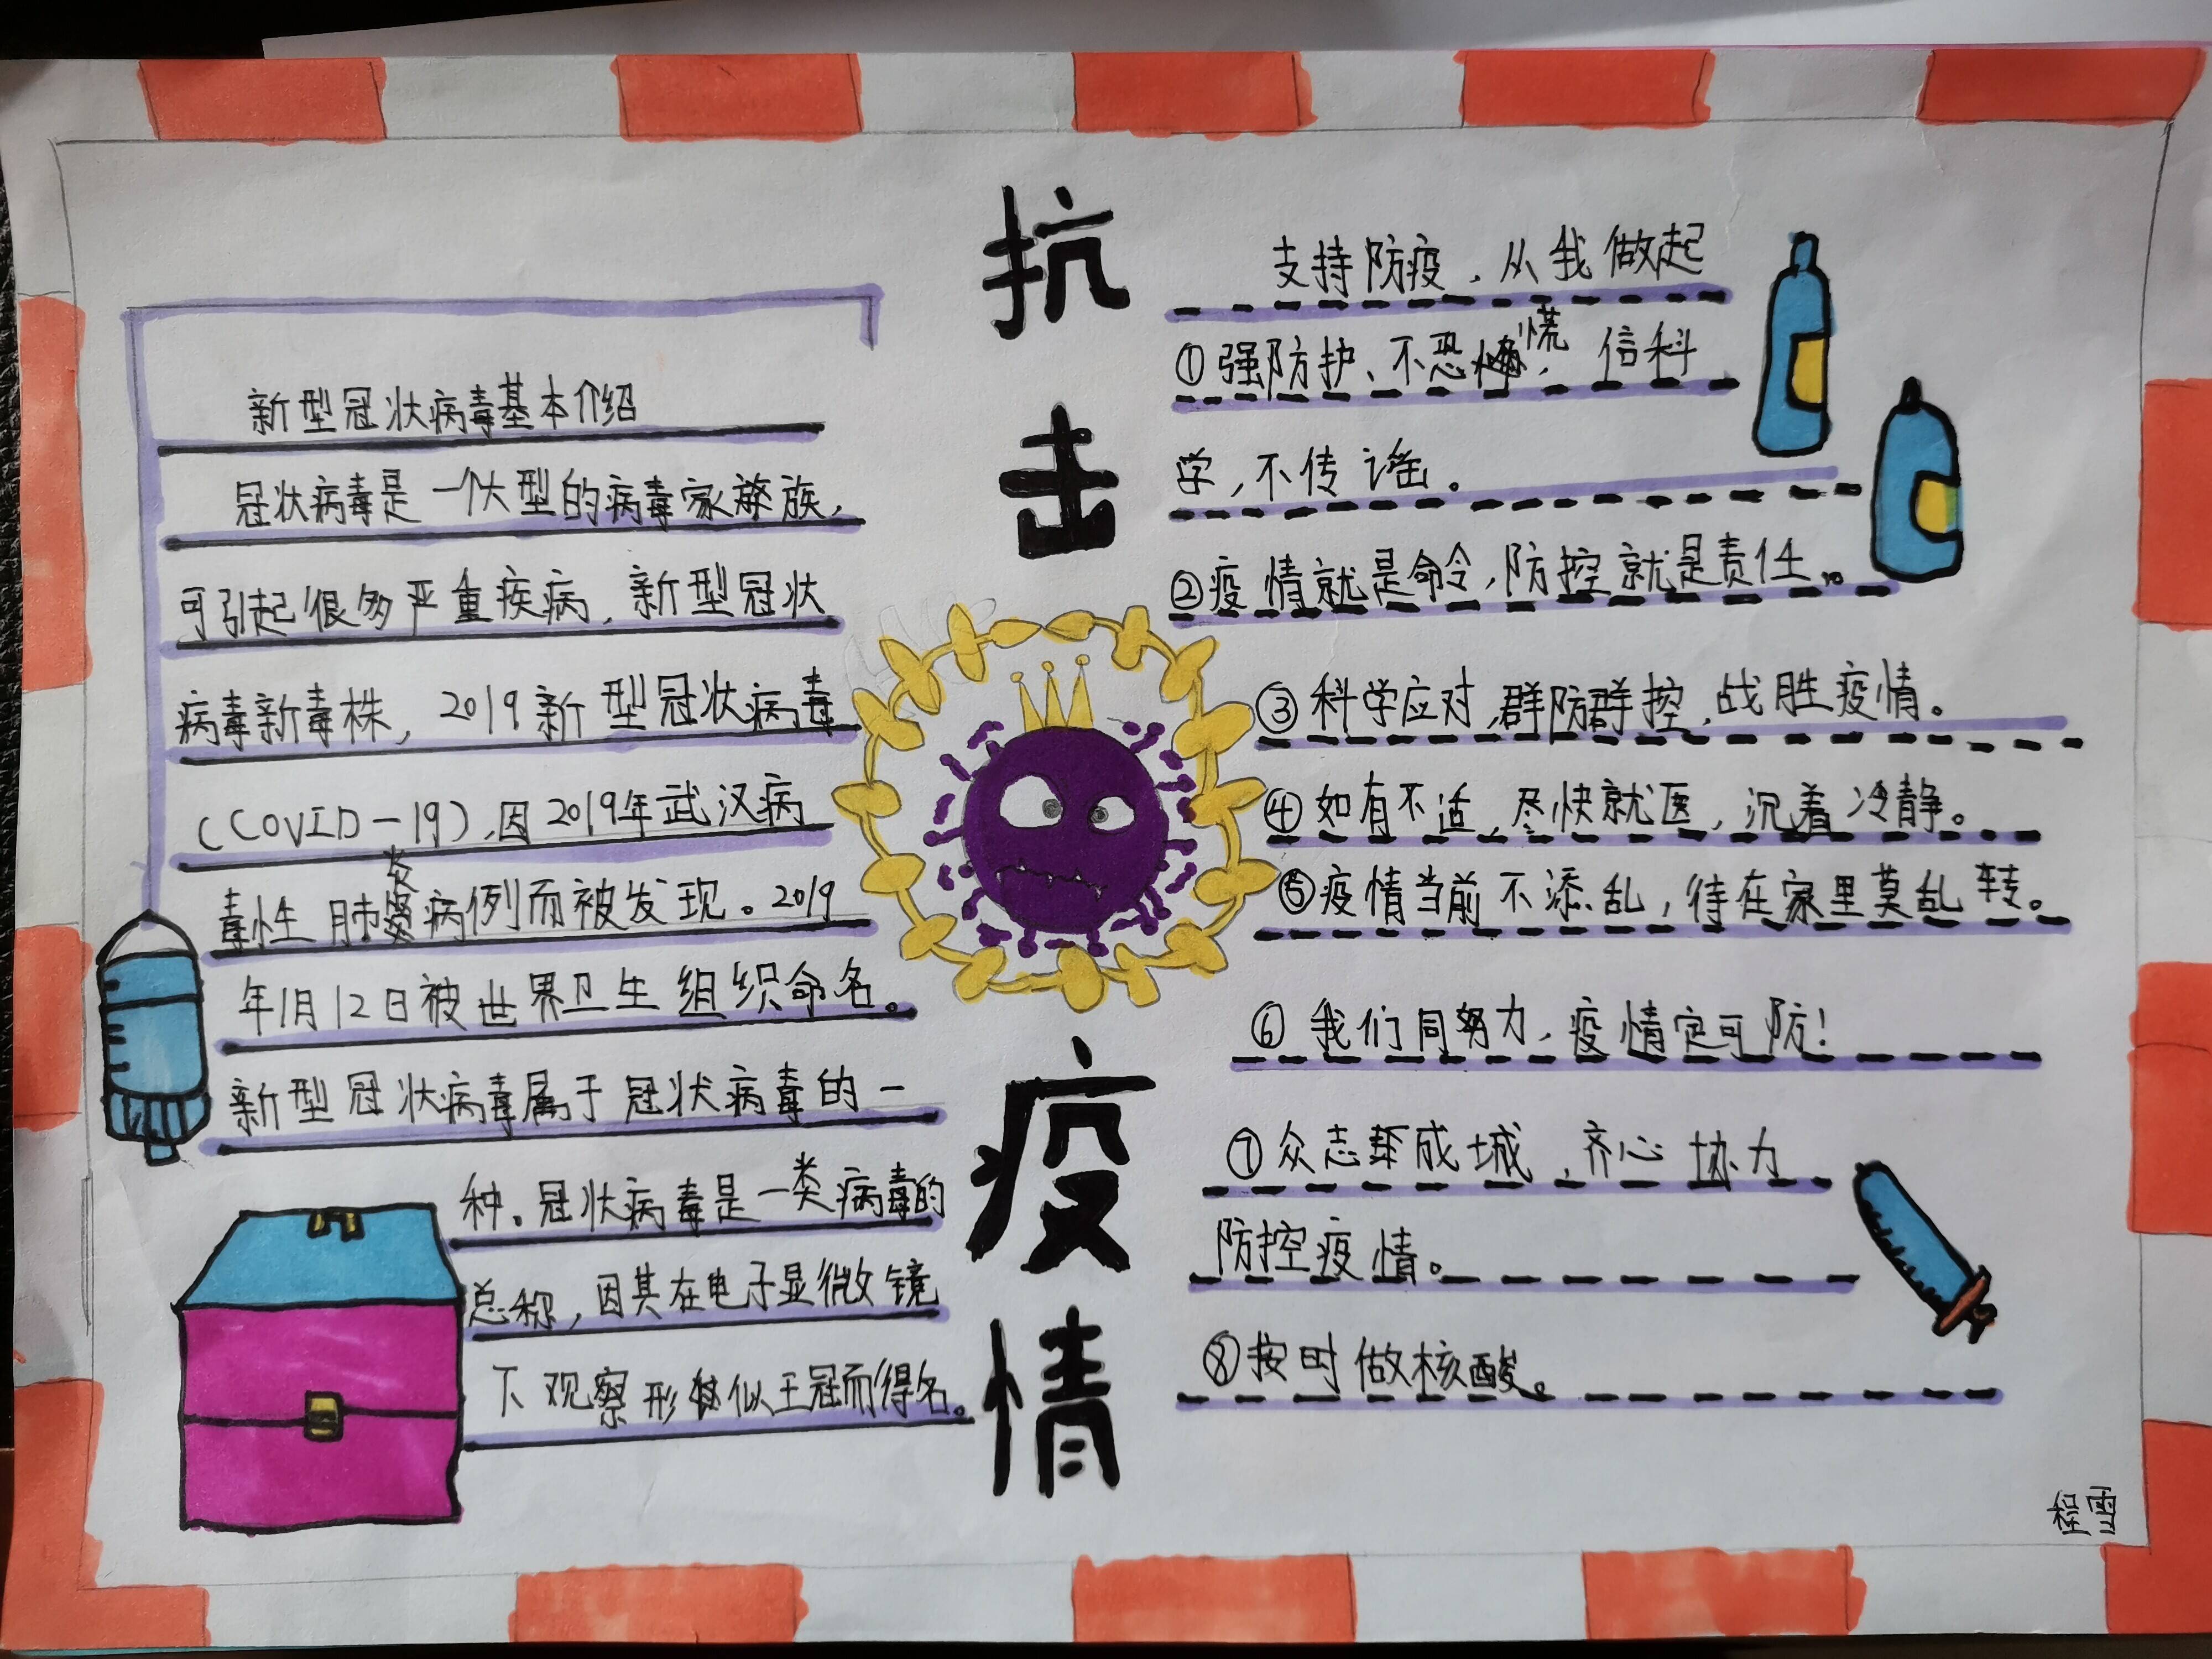 抗击疫情
新型冠状病毒基本介绍
冠状病毒是一个大型的病毒家族,
可引起很多严重疾病,新型冠状
病毒新毒株,2019新型冠状病毒
(COVID-19),因2019年武汉病
毒性肺炎病例而被发现。2019
年1月12日被世界卫生组织命名。
新型冠状病毒属于冠状病毒的一
种。冠状病毒是一类病毒的
总称,因其在电子显微镜
下观察形似王冠而得名。
支持防疫,从我做起
①强防护、不恐慌,信科
学,不传谣。
②疫情就是命令,防控就是责任。
③科学应对,群防群控,战胜疫情。
④如有不适,尽快就医,沉着冷静。
⑤疫情当前不添乱,待在家里莫乱转。
⑥我们同努力,疫情定可防!
⑦众志成城,齐心协力
防控疫情。
⑧按时做核酸。
程雪